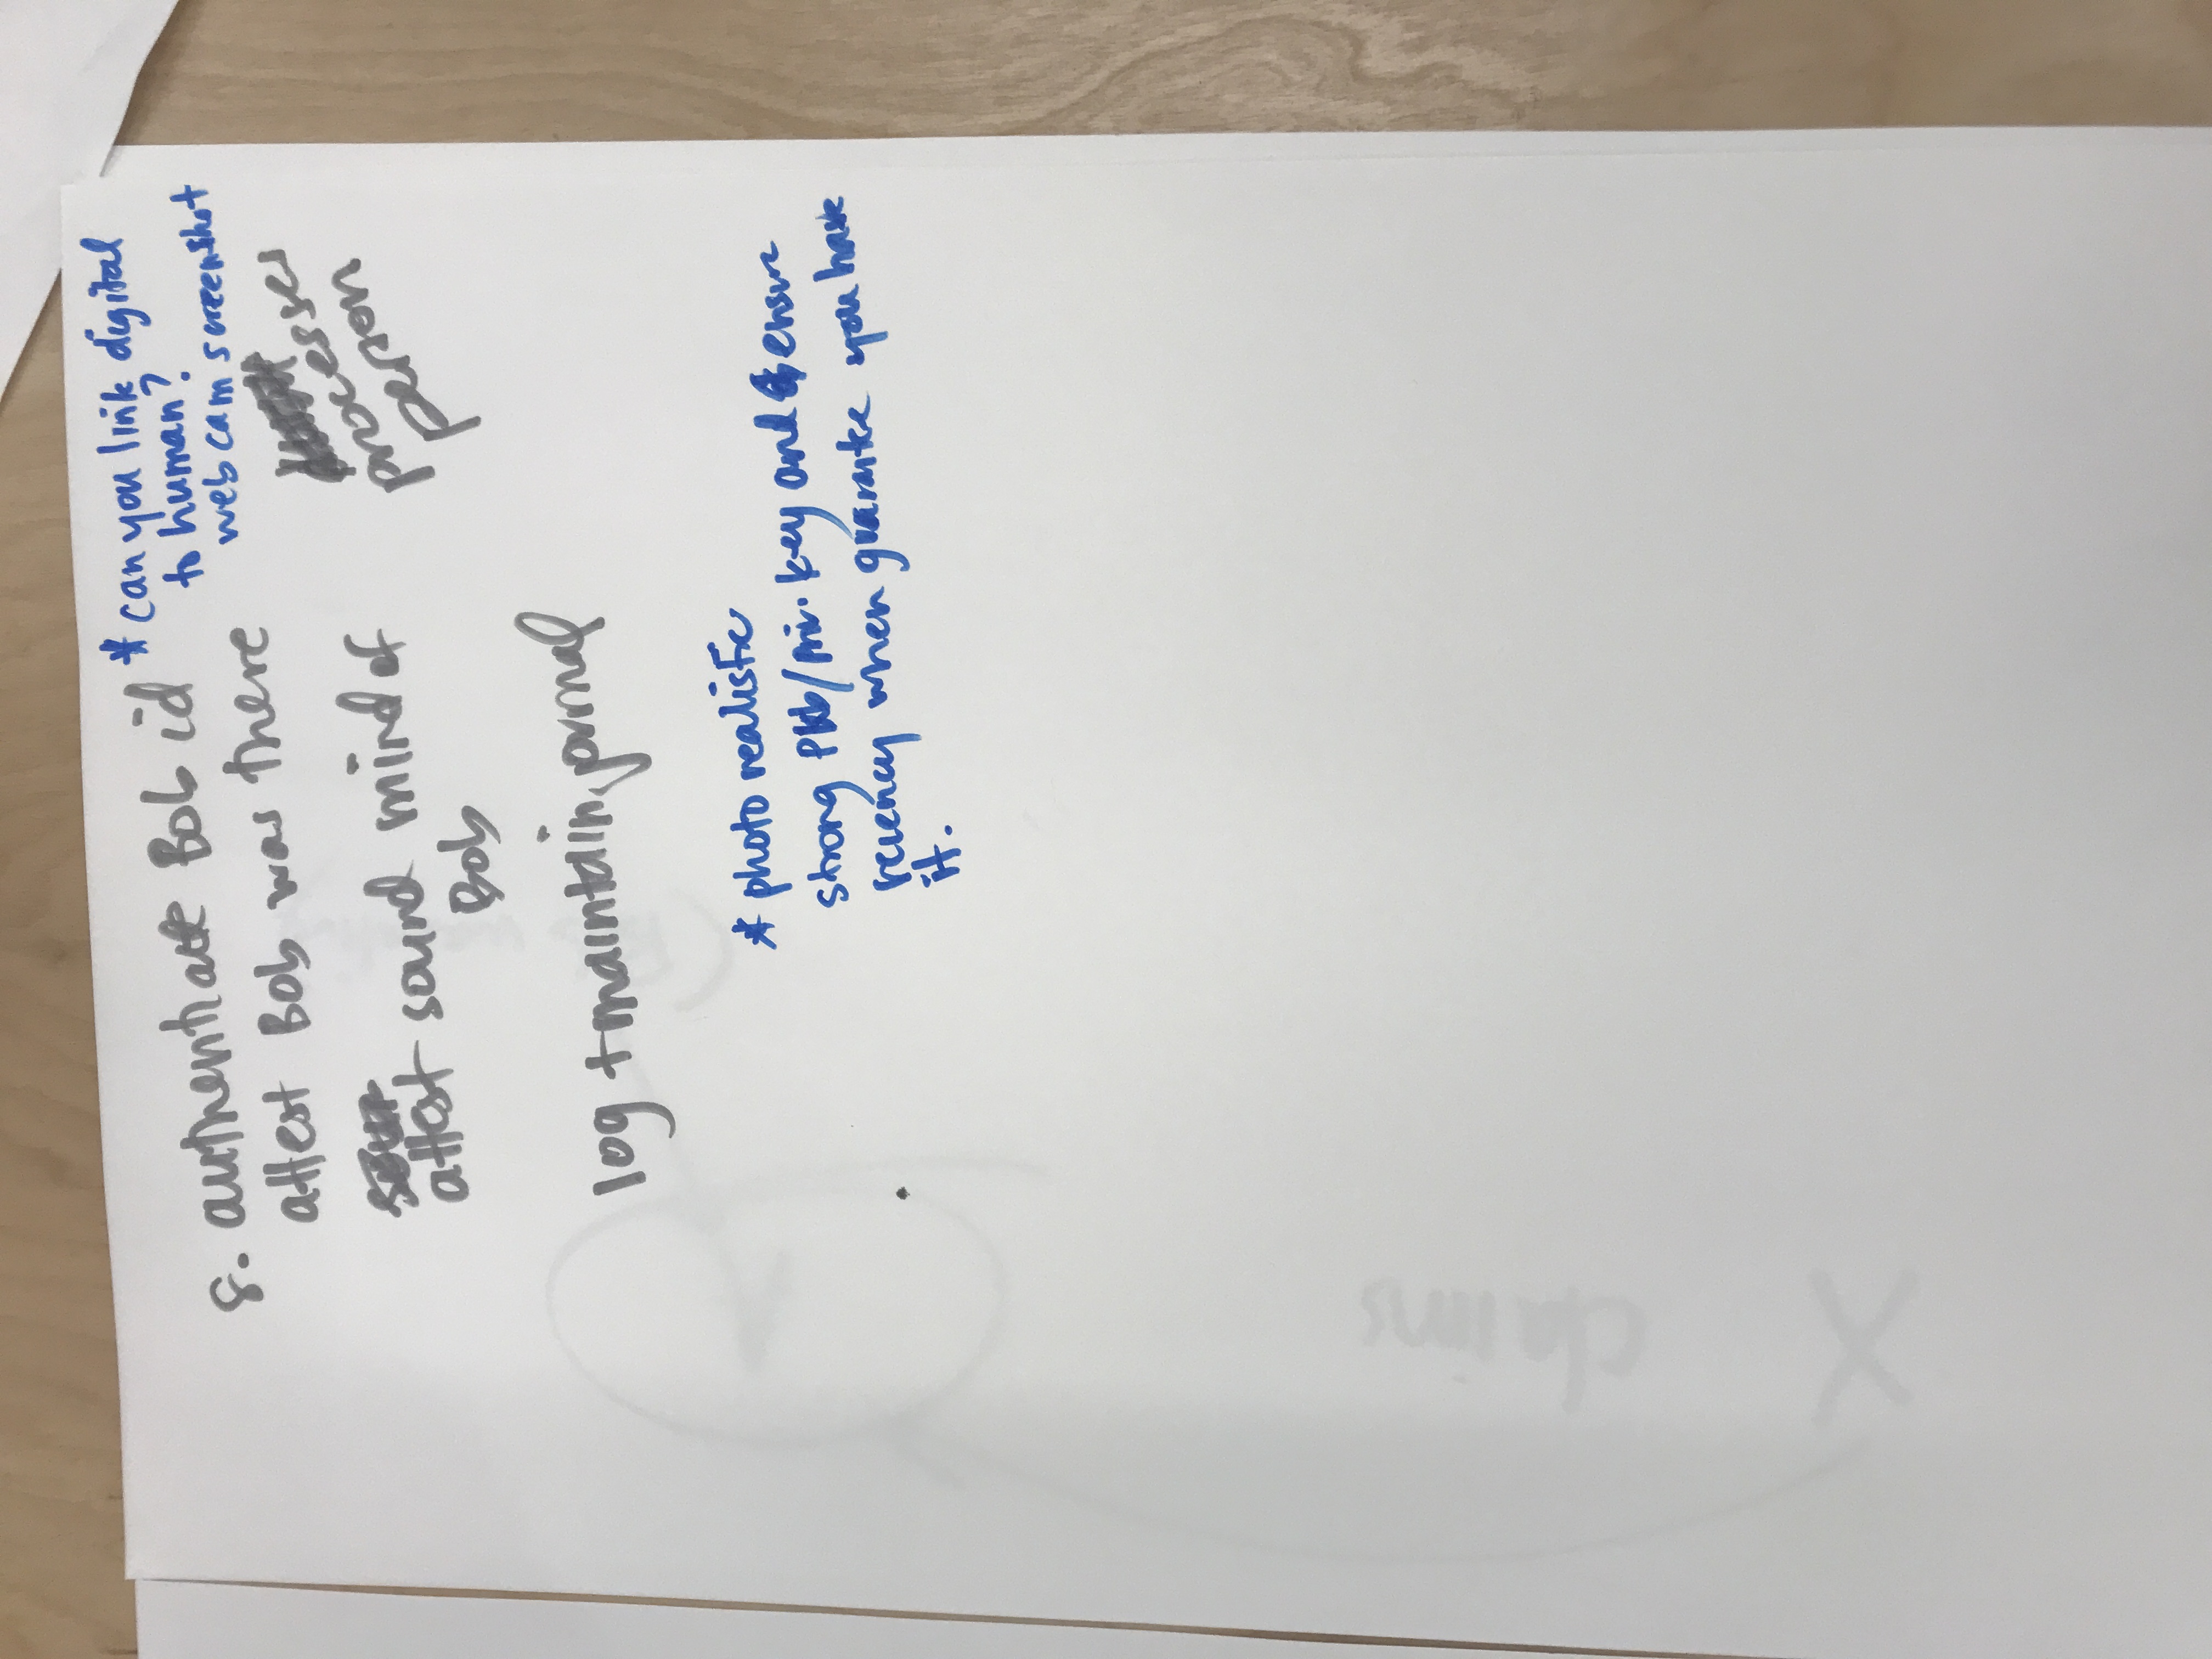 8. authenticate Bob id
attest Bob was there
attest sound mind of
Bob
log + maintain journal
* can you link digital
to human?
web cam screenshot
processes
person
* photo realistic
strong pub/priv. key and ensure
recency when guarantee you have
it.
claims
X